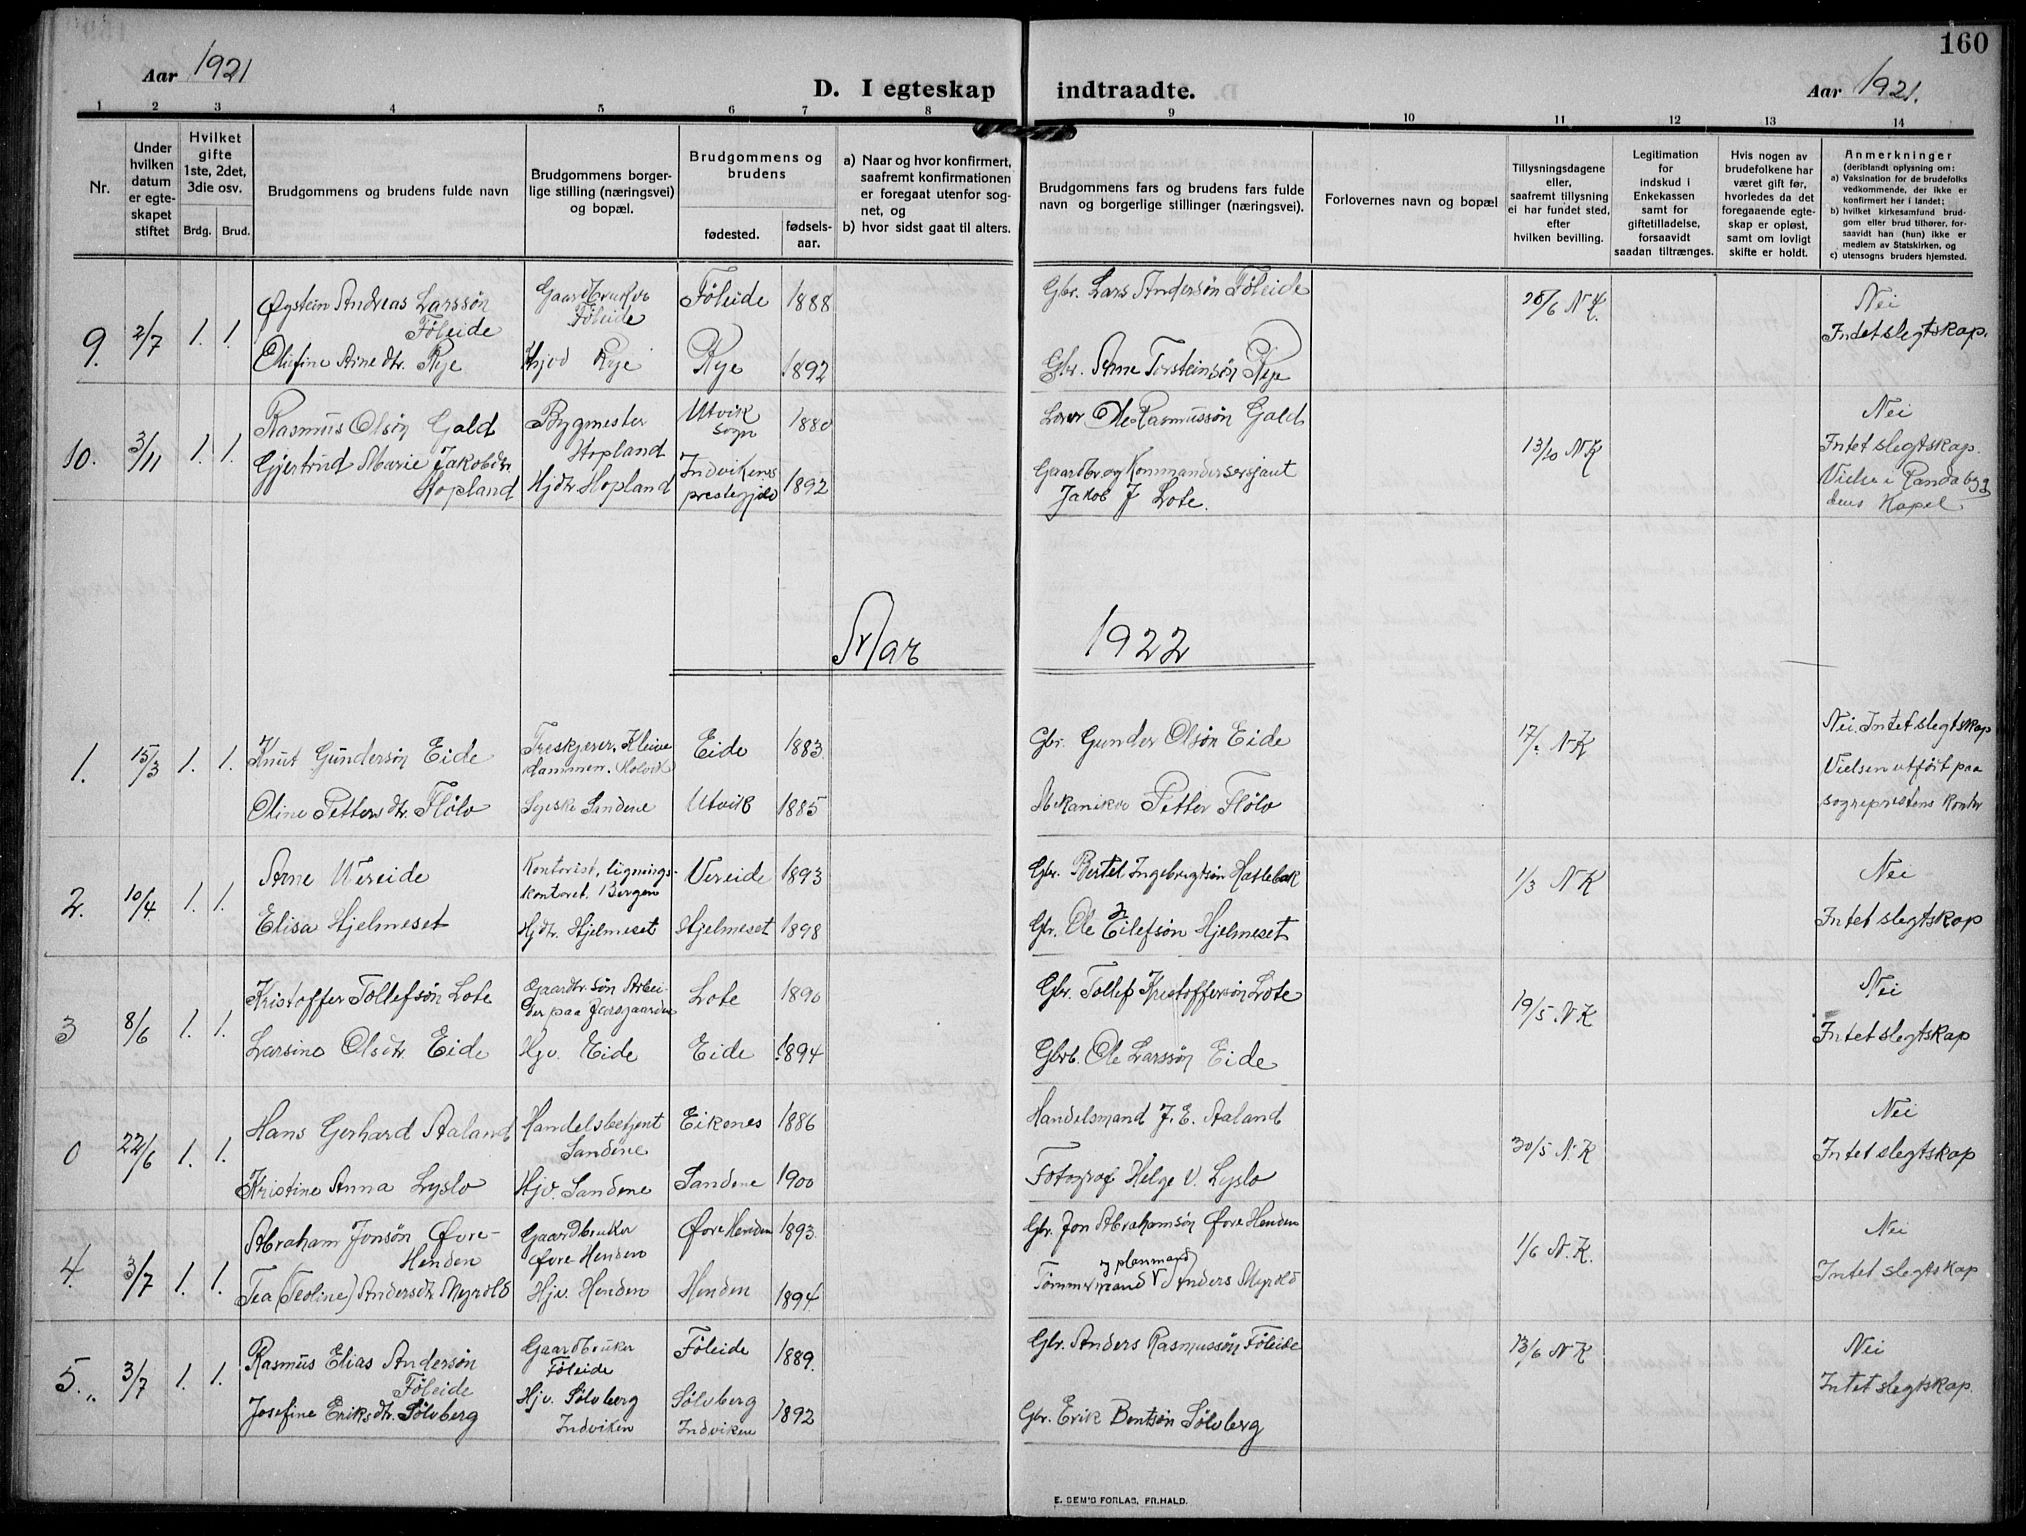 160
Aar 1921
D. I egteskap indtraadte.
Aar 1921.
1 2 3 4 5 6 7 8 9 10 11 12 13 14
Nr.
Under hvilken datum er egte-skapet stiftet
Hvilket gifte 1ste, 2det, 3die osv.
Brdg. Brud.
Brudgommens og brudens fulde navn
Brudgommens borger-lige stilling (næringsvei) og bopæl.
Brudgommens og brudens
fødested.
fødsels-aar.
a) Naar og hvor konfirmert, saafremt konfirmationen er foregaat utenfor sog-net, og
b) hvor sidst gaat til alters.
Brudgommens fars og brudens fars fulde navn og borgerlige stillinger (næringsvei).
Forlovernes navn og bopæl
Tillysningsdagene eller, saafremt tillysning ei har fundet sted, efter hvilken bevilling.
Legitimation for indskud i Enkekassen samt for giftetilladelse, forsaavidt saadan tiltrænges.
Hvis nogen av brudefolkene har været gift før, hvorledes da det foregaaende egte-skap er opløst, samt om lovligt skifte er holdt.
Anmerkninger
(deriblandt oplysning om:
a) Vaksination for de brudefolks vedkommende, der ikke er konfirmert her i landet;
b) hvilket kirkesamfund brud-gom eller brud tilhører, for-saavidt han (hun) ikke er medlem av Statskirken, og
c) utensogns bruders hjemsted.
9. 2/7 1. 1.
Øystein Andreas Larssøn Føleide
Gaardbruker Føleide
Føleide 1888
Gbr. Lars Andersøn Føleide
28/6 N.K.
Nei
Indet slegtskap.
Olefine Arnedtr. Rye
Rye
Rye 1892
Gbr. Arne Torsteinsøn Rye
10. 3/11 1. 1.
Rasmus Olsøn Gald
Bygmester Hopland
Utvik sogn 1880
Lærer Ole Rasmussøn Gald
13/10 NK
Nei
Intet slegtskap.
Gjertrud Marie Jakobdtr Hopland
Hjdtr. Hopland
Indvikens prestegjeld 1892
Gaardbr. og Kommandersersjant Jakob J Lote.
Vielse i Randabyg dens Kapel
Aar 1922
1. 15/3 1. 1.
Knut Gundersøn Eide
Treskjerer, Kleive dammen, Holvik
Eide 1883
Gbr. Gunder Olsøn Eide
NK
Nei. Intet slegtskap
Vielsen utført paa sogneprestens kontor
Oline Pettersdtr. Fløtv
Syerske Sandene
Utvik 1885
Mekaniker Petter Fløtv
2. 10/4 1. 1.
Arne Vereide
Kontorist, lignings-kontoret, Bergen
Vereide 1893
Gbr. Bertel Ingebrigtsøn
1/3 NK
Nei
Intet slegtskap
Elisa Hjelmeset
Hjdtr. Hjelmeset
Hjelmeset 1898
Gbr. Ole Eilefsøn Hjelmeset
3 8/6 1. 1.
Kristoffer Tollefsøn Lote
Gaardbr. søn Arbei der paa
Lote 1890
Gbr. Tollef Kristoffersøn Lote
19/5 N.K
Nei
Intet slegtskap
Larsine Olsdtr. Eide
Hjv. Eide
Eide 1894
Gbr. Ole Larssøn Eide
0 22/6 1. 1.
Hans Gerhard Aaland
Handelsbetjent Sandene
Eikenes 1886
Handelsmand J. E. Aaland
30/5 N.K
Nei
Intet slegtskap
Kristine Anna Lyslo
Hjv. Sandene
Sandene 1900
Fotograf Helge V. Lyslo
4. 3/7 1. 1.
Abraham Jonsøn Øvre-Henden
Gaardbruker Øvre Henden
Øvre Henden 1893
Gbr. Jon Abrahamsøn Øvre Henden
1/6 N.K.
Nei
Intet slegtskap
Tea (Teoline) Andersdtr Myrold
Hjv. Henden
Henden 1894
Tømmermand og planmand Anders Myrold
5. 3/7 1. 1.
Rasmus Elias Andersøn Føleide
Gaardbruker Føleide
Føleide 1889.
Gbr. Anders Rasmussøn Føleide
13/6 NK
Nei
Intet slegtskap.
Josefine Eriksdtr. Sølvberg
Hjv. Sølvberg Indviken
Sølvberg Indviken 1892
Gbr. Erik Bentsøn Sølvberg
E. SEM'S FORLAG, FR.HALD.